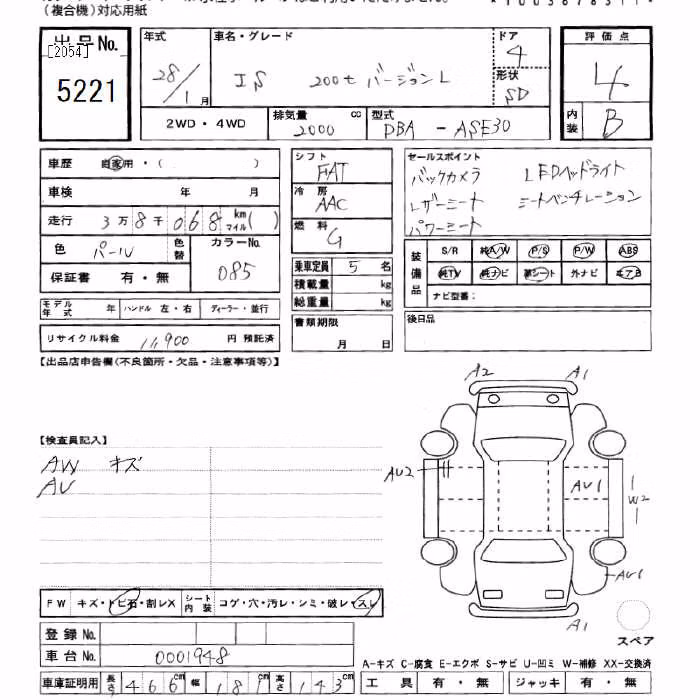 (複合機)対応用紙
出品No.
[2054]
5221
年式 28/1月
車名・グレード
IS 200t バージョンL
ドア 4
形状 SD
評価点 4
内装 B
2WD・4WD
排気量 2000 cc
型式 DBA - ASE30
車歴 自家用・( )
車検 年 月
走行 3万8千068 km マイル ( )
色 パール 色替
カラーNo. 085
保証書 有・無
モデル年式 年 ハンドル 左・右 ディーラー・並行
リサイクル料金 11,900 円 預託済
シフト FAT
冷房 AAC
燃料 G
乗車定員 5 名
積載量 kg
総重量 kg
書類期限
月 日
セールスポイント
バックカメラ LEDヘッドライト
レザーシート シートベンチレーション
パワーシート
装備品
S/R 純A/W P/S P/W ABS
純TV 純ナビ 革シート 外ナビ エアB
ナビ型番:
後日品
【出品店申告欄(不良箇所・欠品・注意事項等)】
【検査員記入】
AW キズ
AU
A2
A1
AU2
AU1
W2
AU1
A1
スペア
FW キズ・トビ石・割レX シート内装 コゲ・穴・汚レ・シミ・破レ・スレ
登録No.
車台No. 0001948
車庫証明用 長さ 466cm 幅 181cm 高さ 143cm
A-キズ C-腐食 E-エクボ S-サビ U-凹ミ W-補修 XX-交換済
工具 有・無 ジャッキ 有・無